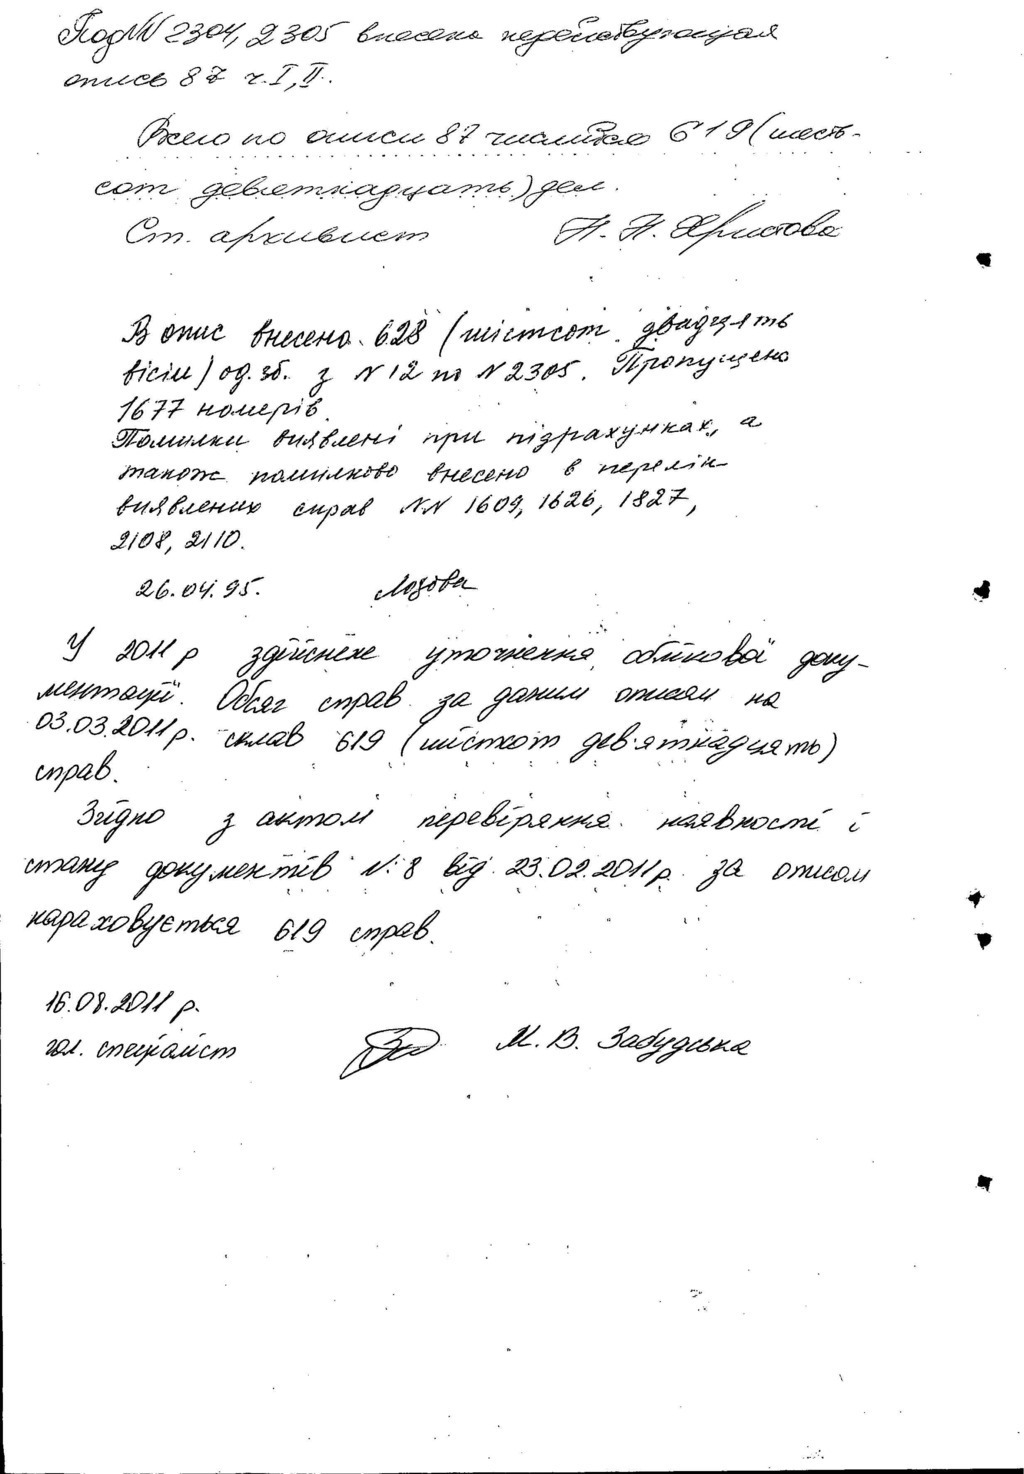 Под NN 2304, 2305 внесена недействующая
опись 87 ч. I, II.
Всего по описи 87 числится 619 (шесть-
сот девятнадцать) дел.
Ст. архивист Н. Н. Христова
В опис внесено 628 (шістсот двадцять
вісім) од. зб. з N 12 по N 2305. Пропущено
1677 номерів.
Помилки виявлені при підрахунках, а
також помилково внесено в перелік
виявлених справ NN 1609, 1626, 1827,
2108, 2110.
26.04.95. Лозова
У 2011 р здійснене уточнення облікової доку-
ментації. Обсяг справ за даним описом на
03.03.2011 р. склав 619 (шістсот дев'ятнадцять)
справ.
Згідно з актом перевіряння наявності і
стану документів №8 від 23.02.2011 р. за описом
нараховується 619 справ.
16.08.2011 р.
гол. спеціаліст М. В. Забудська